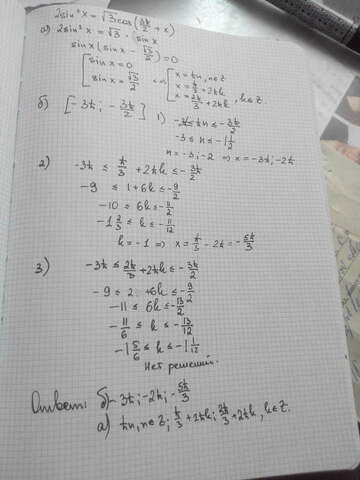 2sin²x = √3cos(3π/2 + x)
а) 2sin²x = √3 · sinx
sinx(sinx − √3/2) = 0
[sinx = 0; sinx = √3/2 ⇔ [x = πn, n∈Z; x = π/3 + 2πk; x = 2π/3 + 2πk, k∈Z
б) [−3π; −3π/2] 1) −3π ≤ πn ≤ −3π/2
−3 ≤ n ≤ −1 1/2
n = −3; −2 ⇒ x = −3π; −2π
2) −3π ≤ π/3 + 2πk ≤ −3π/2
−9 ≤ 1+6k ≤ −9/2
−10 ≤ 6k ≤ −11/2
−1 2/3 ≤ k ≤ −11/12
k = −1 ⇒ x = π/3 − 2π = −5π/3
3) −3π ≤ 2π/3 + 2πk ≤ −3π/2
−9 ≤ 2 + 6k ≤ −9/2
−11 ≤ 6k ≤ −13/2
−11/6 ≤ k ≤ −13/12
−1 5/6 ≤ k ≤ −1 1/12
Нет решений.
Ответ: б) −3π; −2π; −5π/3
а) πn, n∈Z; π/3 + 2πk; 2π/3 + 2πk, k∈Z.